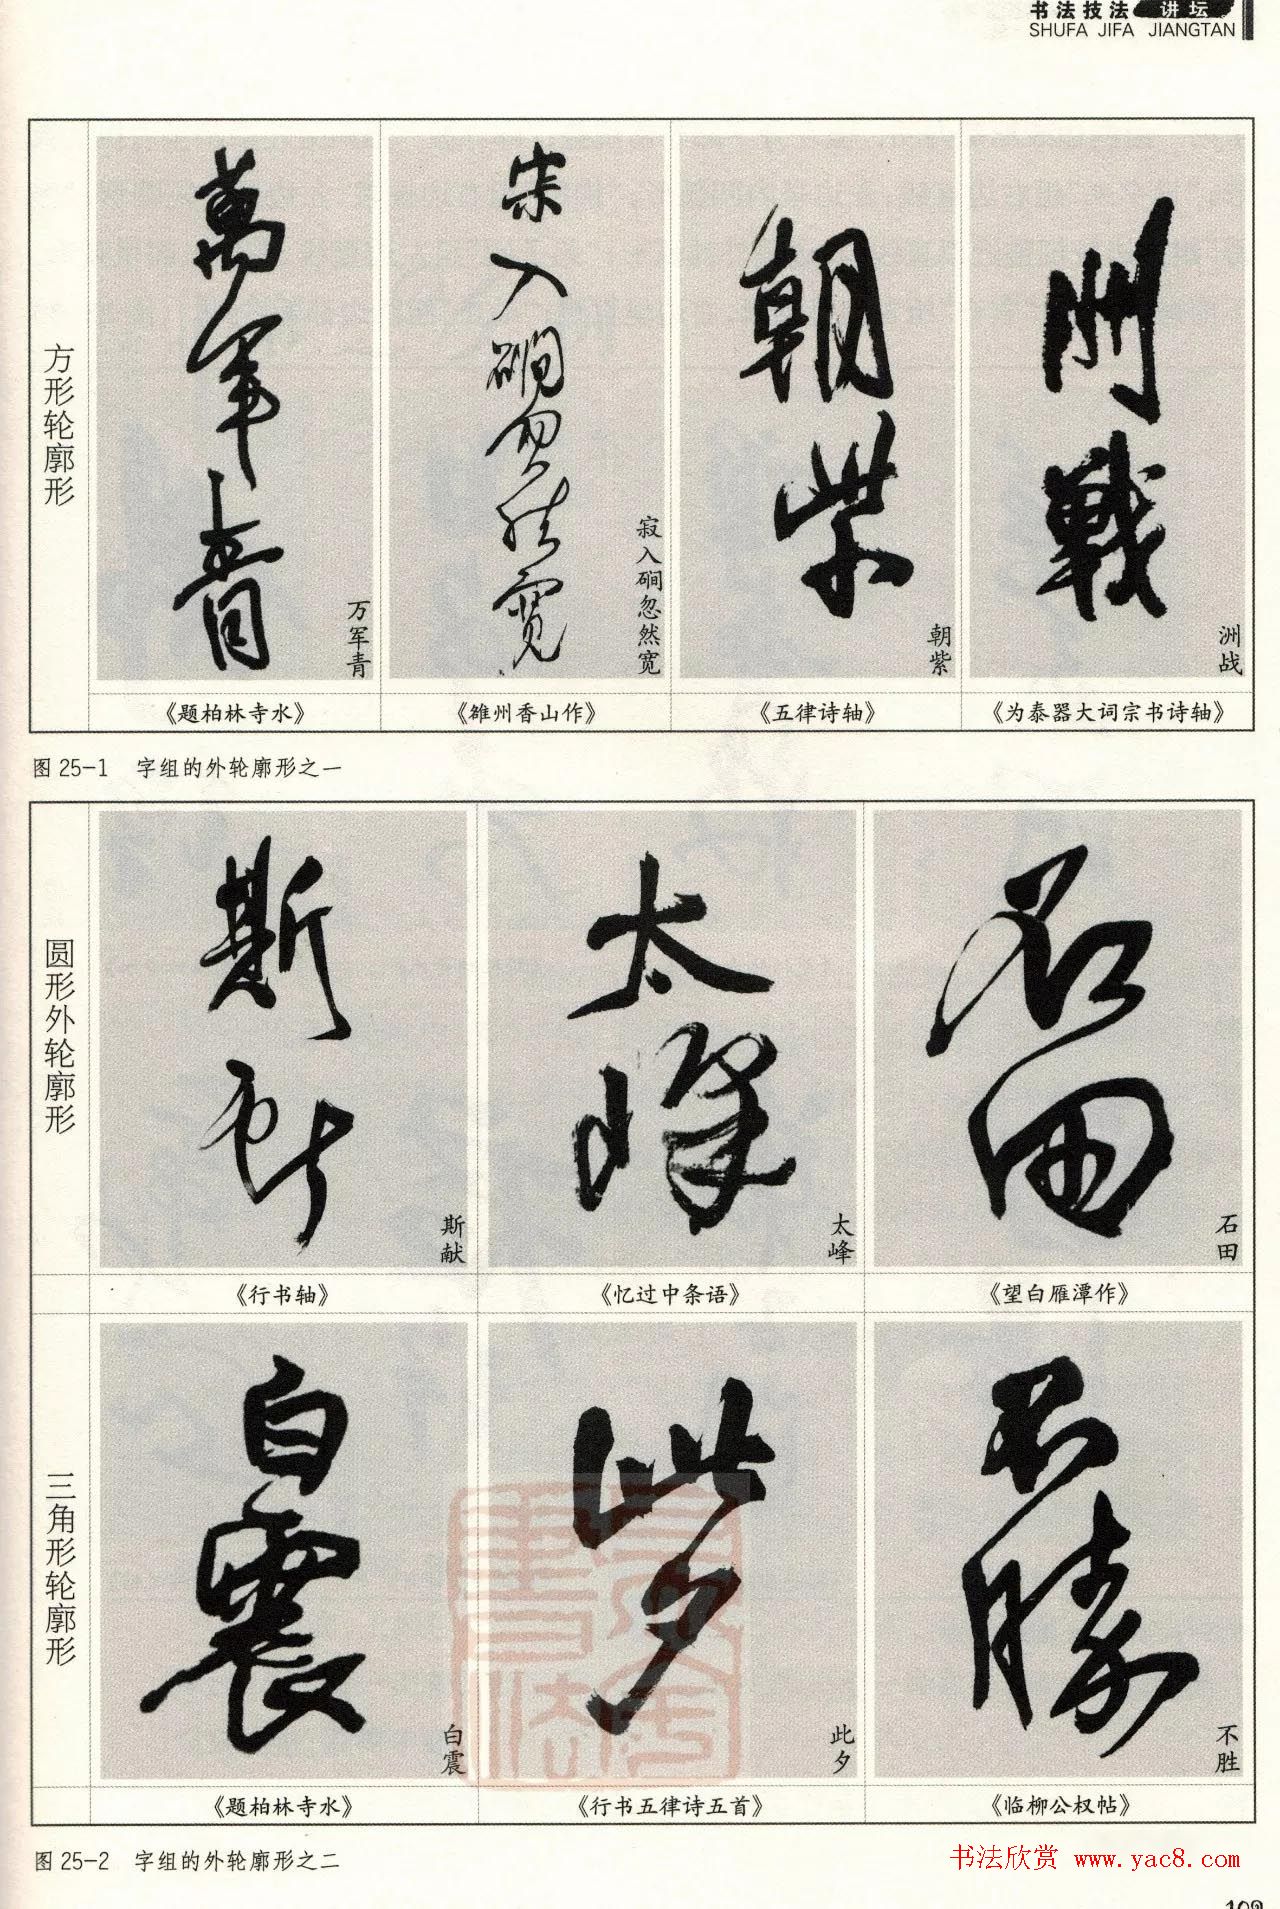 书法技法 讲坛
SHUFA JIFA JIANGTAN
方形轮廓形
萬軍青
万军青
《题柏林寺水》
寂入磵忽然寬
寂入硐忽然宽
《雒州香山作》
朝紫
朝紫
《五律诗轴》
洲戰
洲战
《为泰器大词宗书诗轴》
图 25-1 字组的外轮廓形之一
圆形外轮廓形
斯献
《行书轴》
太峰
太峰
《忆过中条语》
石田
石田
《望白雁潭作》
三角形轮廓形
白震
白震
《题柏林寺水》
此夕
此夕
《行书五律诗五首》
不勝
不胜
《临柳公权帖》
图 25-2 字组的外轮廓形之二
书法欣赏 www.yac8.com
109